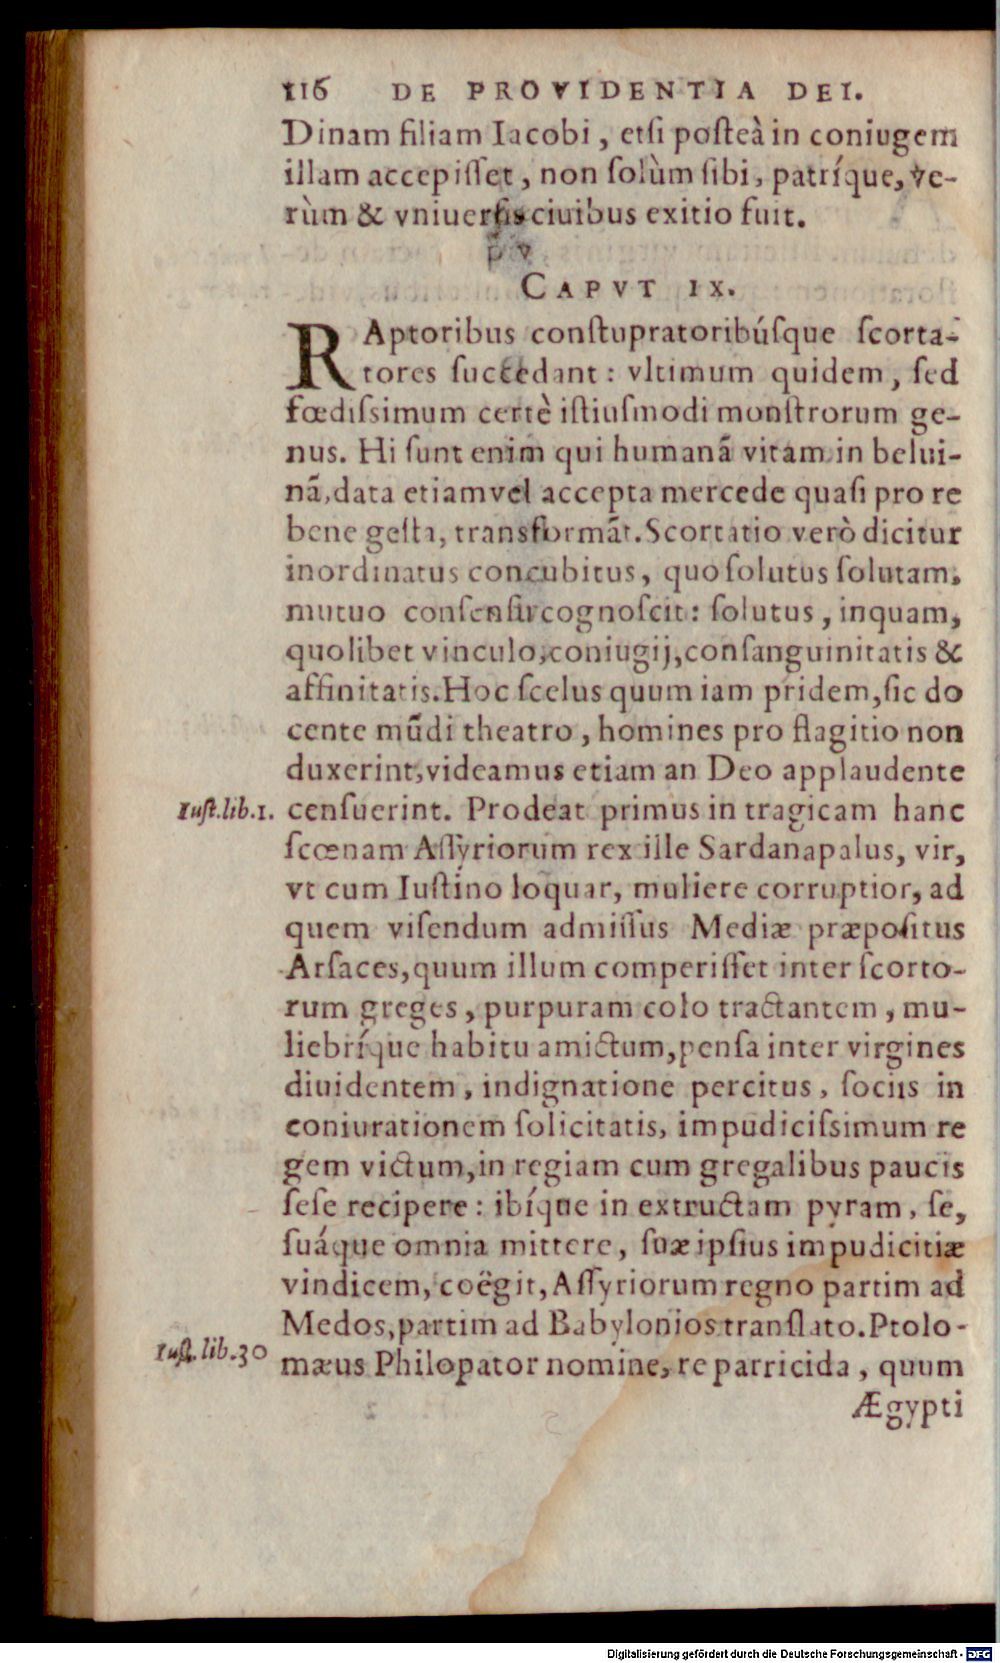 116 DE PROVIDENTIA DEI.
Dinam filiam Iacobi, etsi posteà in coniugem
illam accepisset, non solùm sibi, patríque, ve-
rùm & vniuersis ciuibus exitio fuit.
CAPVT IX.
RAptoribus constupratoribúsque scorta-
tores succedant: vltimum quidem, sed
fœdissimum certè istiusmodi monstrorum ge-
nus. Hi sunt enim qui humanã vitam in belui-
nã, data etiam vel accepta mercede quasi pro re
bene gesta, transformãt. Scortatio verò dicitur
inordinatus concubitus, quo solutus solutam,
mutuo consensu cognoscit: solutus, inquam,
quolibet vinculo, coniugij, consanguinitatis &
affinitatis. Hoc scelus quum iam pridem, sic do
cente mũdi theatro, homines pro flagitio non
duxerint, videamus etiam an Deo applaudente
Iust.lib.1. censuerint. Prodeat primus in tragicam hanc
scœnam Assyriorum rex ille Sardanapalus, vir,
vt cum Iustino loquar, muliere corruptior, ad
quem visendum admissus Mediæ præpositus
Arsaces, quum illum comperisset inter scorto-
rum greges, purpuram colo tractantem, mu-
liebríque habitu amictum, pensa inter virgines
diuidentem, indignatione percitus, sociis in
coniurationem solicitatis, impudicissimum re
gem victum, in regiam cum gregalibus paucis
sese recipere: ibíque in extructam pyram, se,
suáque omnia mittere, suæ ipsius impudicitiæ
vindicem, coëgit, Assyriorum regno partim ad
Medos, partim ad Babylonios translato. Ptolo-
Iust.lib.30 mæus Philopator nomine, re parricida, quum
Ægypti
Digitalisierung gefördert durch die Deutsche Forschungsgemeinschaft - DFG